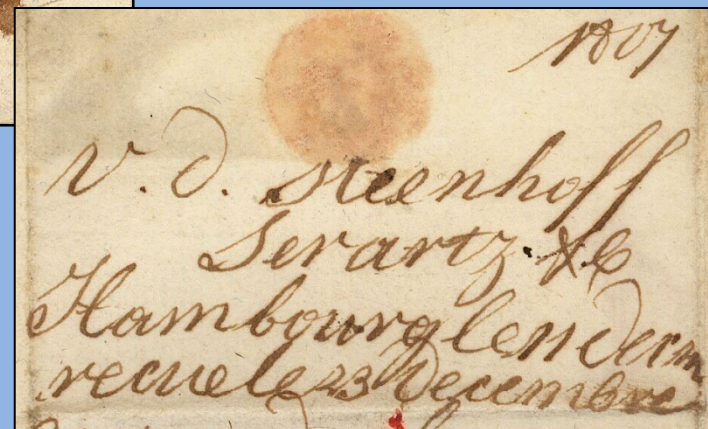 1807
v. d. steenhoff
Serartz & C
Hambourg le 11 decm
recue le 23 Decembre